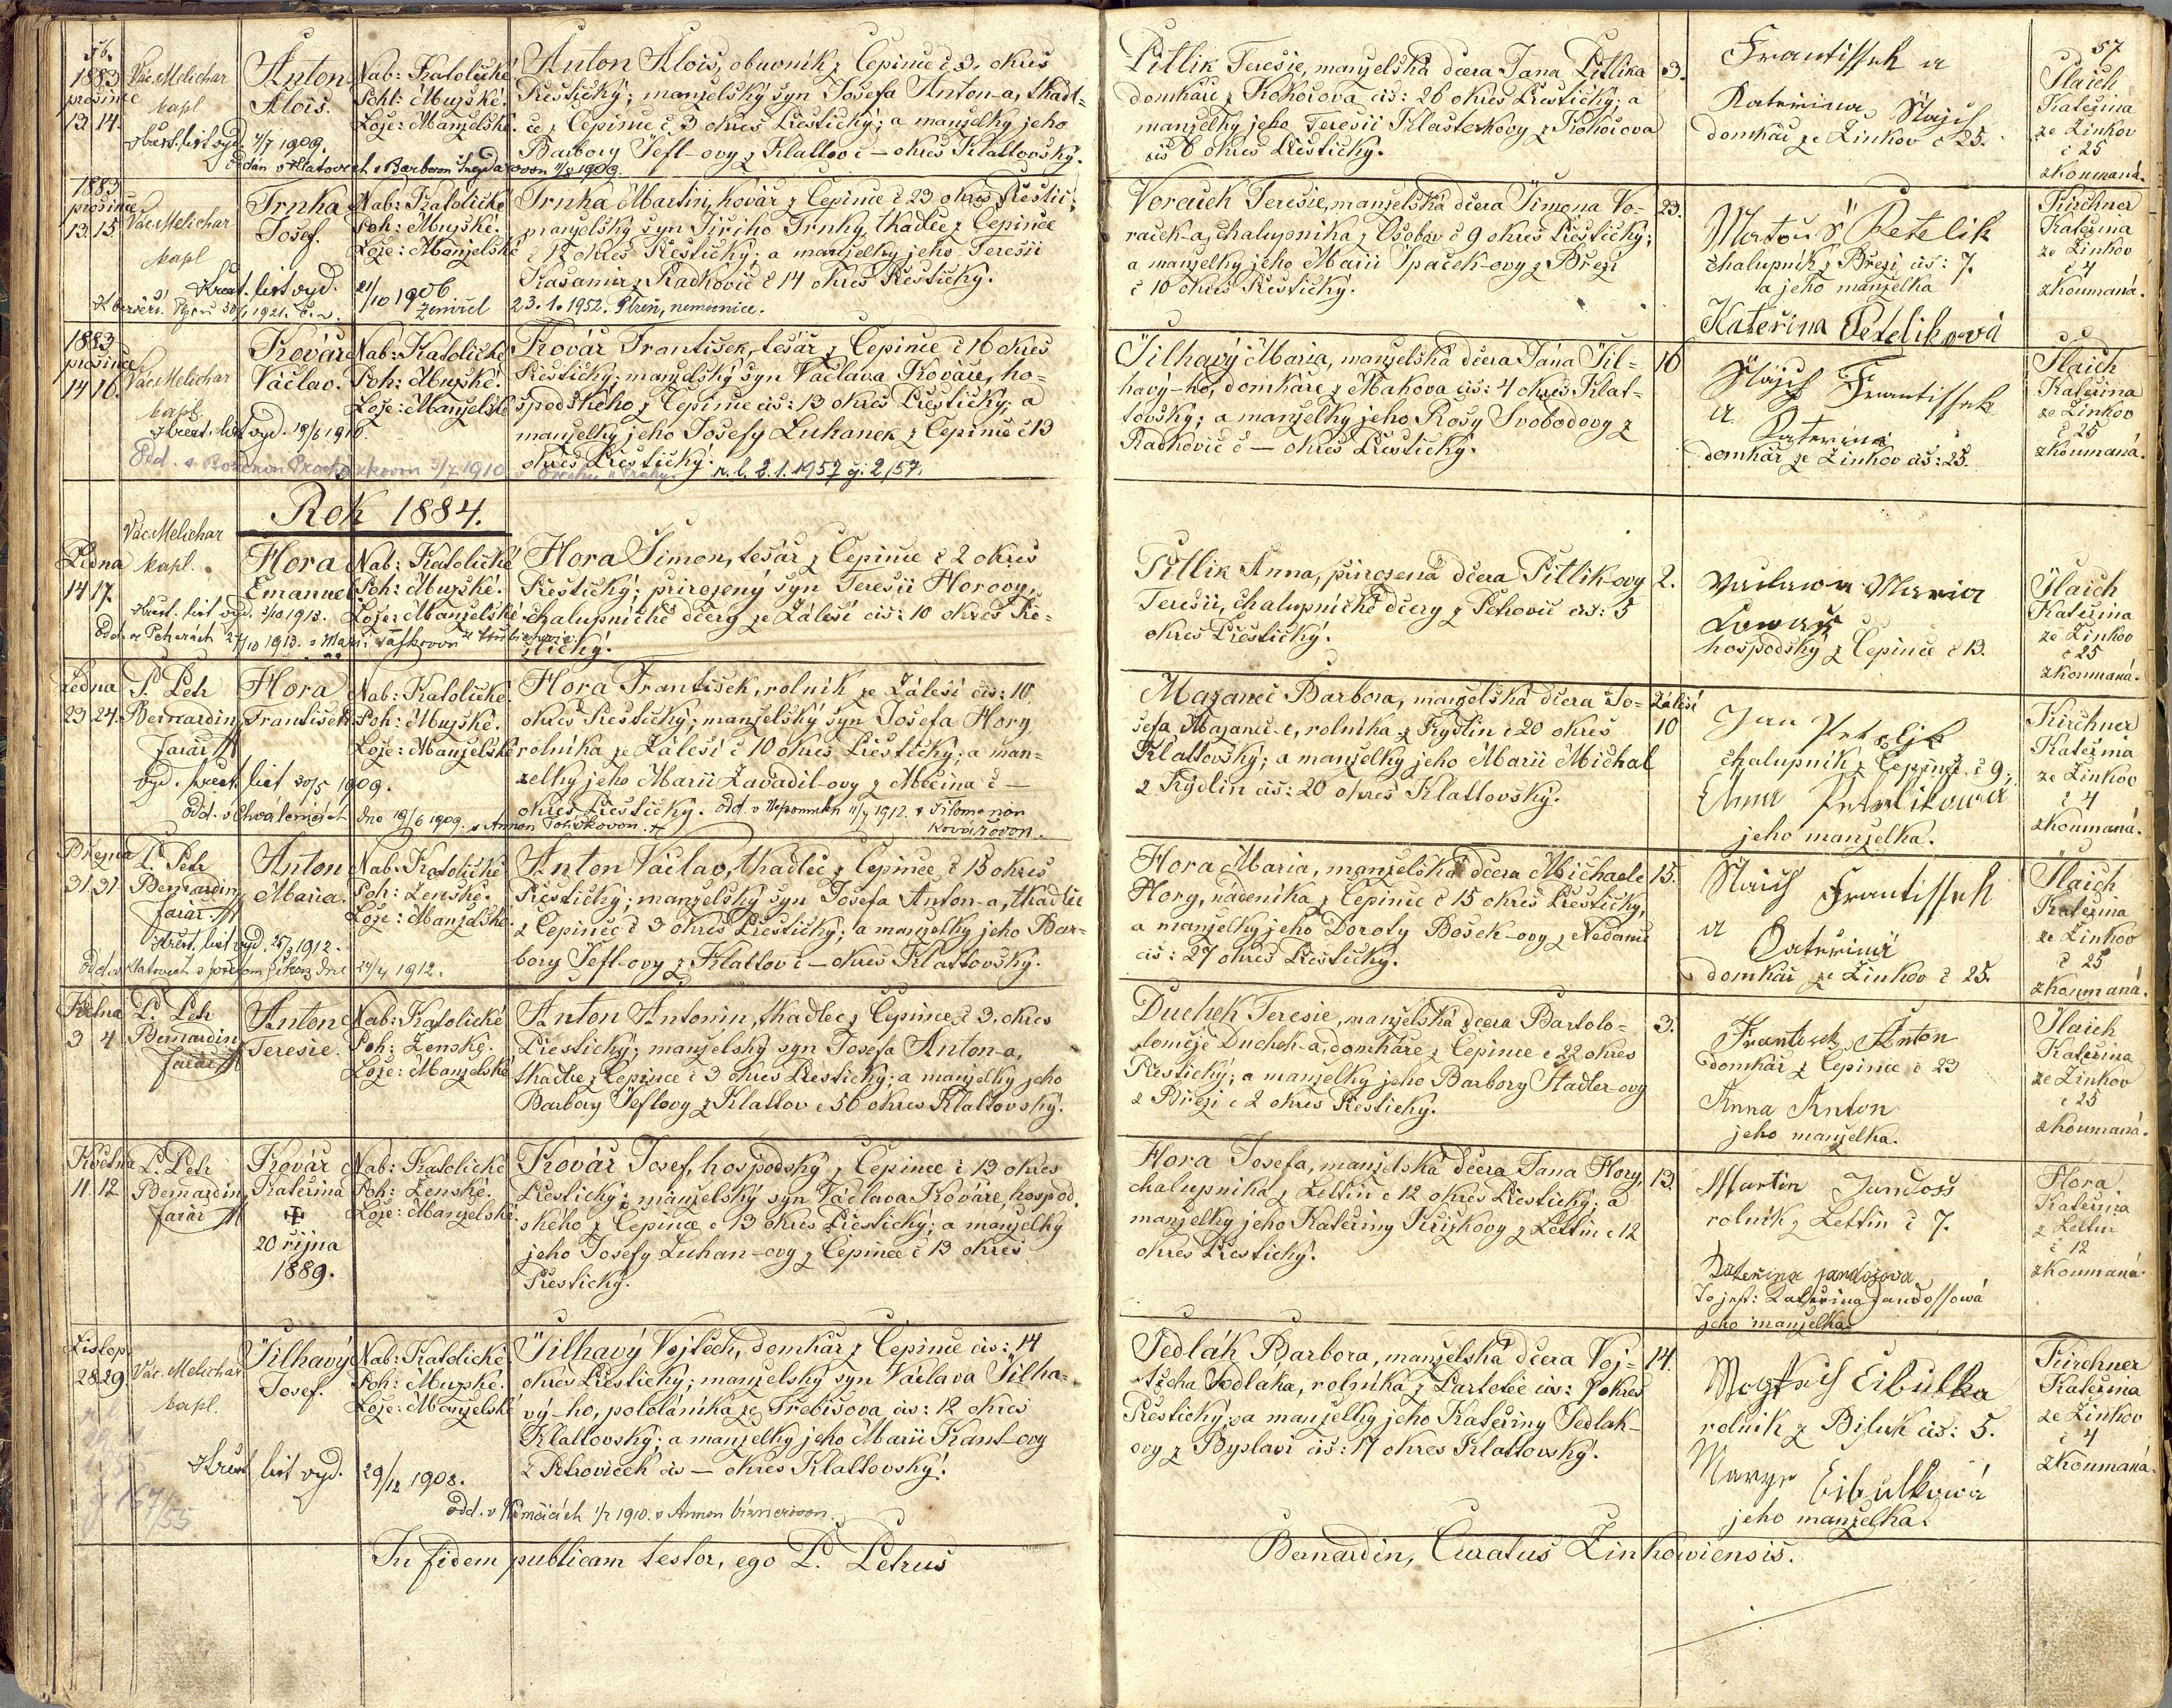 56.
1883
prosince
13. 14.
Vác. Melichar
kapl
Anton
Alois.
Nab: Katolické.
Pohl: Mužské.
Lože: Manželské.
Anton Alois, obuvník z Čepince č 3. okres
Přeštický; manželský syn Josefa Anton-a, tkadl-
ce z Čepince č 3 okres Přeštický; a manželky jeho
Barbory Šefl-ovy z Klattov č — okres Klattovský.
křest. list vyd. 4/7 1909.
Pitlik Teresie, manželská dcera Jana Pitlika
domkáře z Kokořova čís: 26 okres Přeštický; a
manželky jeho Teresii Klasterkovy z Kokořova
čís 6 okres Přeštický.
3.
Frantissek a
Katerina Slajs
domkář ze Žinkov č 25.
57
Šlaich
Kateřina
ze Žinkov
č 25
zkoumaná.
1883
prosince
13. 15.
Vác. Melichar
kapl
Trnka
Josef.
Nab: Katolické
Poh: Mužské.
Lože: Manželské
Trnka Martin, kovář z Čepince č 23 okres Přeštic;
manželský syn Jiřiho Trnky, tkadlce z Čepince
č 12 okres Přeštický; a manželky jeho Teresii
Kasamir z Radkovic č 14 okres Přeštický.
Křest. list vyd. 21/10 1906
Zemřel 23. 1. 1952. Plzeň, nemocnice.
Voraček Teresie, manželská dcera Šimona Vo-
raček-a, chalupníka z Osobov č 9 okres Přeštický;
a manželky jeho Marii Špaček-ovy z Březi
č 10 okres Přeštický.
23.
Matouš Petelik
chalupník z Březi čís: 7.
a jeho manželka
Kateřina Peteliková
Kirchner
Kateřina
ze Žinkov
č 4
zkoumaná.
1883
prosince
14 16.
Vác. Melichar
kapl.
Kovář
Václav.
Nab: Katolické
Poh: Mužské.
Lože: Manželské
Kovář František, tesař z Čepince č 16 okres
Přeštický; manželský syn Václava Kováře, ho-
spodského z Čepince čís: 13 okres Přeštický; a
manželky jeho Josefy Luhanek z Čepince č 13
okres Přeštický.
křest. list vyd. 19/6 1910.
n. l. 2. 1. 1957 čj: 2/57.
Šilhavý Maria, manželská dcera Jána Šil-
havý-ho, domkáře z Makova čís: 4 okres Klat-
tovský; a manželky jeho Rosy Svobodovy z
Radkovic č — okres Přeštický.
16
Slajs Frantissek
a Katerina
domkář ze Žinkov čís: 25.
Šlaich
Kateřina
ze Žinkov
č 25
zkoumaná.
Rok 1884.
Ledna
14 17.
Vác. Melichar
kapl.
Hora
Emanuel
Nab: Katolické
Poh: Mužské.
Lože: Manželské
Hora Šimon, tesař z Čepince č 2 okres
Přeštický; přirozený syn Teresii Horovy,
chalupnické dcery ze Zálesí čís: 10 okres Pře-
štický.
Křest. list vyd. 3/10 1913.
Pitlik Anna, přirozená dcera Pitlik-ovy
Teresii, chalupnické dcery z Petrovic čís: 5
okres Přeštický.
2.
Vaclav a Maria
hospodský z Čepince č 13.
Šlaich
Kateřina
ze Žinkov
č 25
zkoumaná.
Ledna
23 24.
P. Petr
Bernardin
farář
Hora
František.
Nab: Katolické.
Poh: Mužské.
Lože: Manželské
Hora František, rolník ze Zálesí čís: 10
okres Přeštický; manželský syn Josefa Hory
rolníka ze Zálesí č 10 okres Přeštický; a man-
želky jeho Marii Zavadil-ovy z Měčína č —
okres Přeštický.
vyd. křest. list 30/5 1909.
Mazaneč Barbora, manželská dcera Jo-
sefa Mazaneč-e, rolníka z Kydlin č 20 okres
Klattovský; a manželky jeho Marii Michal
z Kydlin čís: 20 okres Klattovský.
Zálesí
10
Jan Petelik
chalupník z Čepince č 9,
Anna Petelikowá
jeho manželka.
Kirchner
Kateřina
ze Žinkov
č 4
zkoumaná.
Března
31. 31.
P. Petr
Bernardin
farář
Anton
Maria.
Nab: Katolické
Poh: Ženské.
Lože: Manželské.
Anton Václav, tkadlec z Čepince č 15 okres
Přeštický; manželský syn Josefa Anton-a, tkadlce
z Čepince č 3 okres Přeštický; a manželky jeho Bar-
bory Šefl-ovy z Klattov č — okres Klattovský.
Křest. list vyd. 25/3 1912.
Hora Maria, manželská dcera Michaele
Hory, nádeníka z Čepince č 15 okres Přeštický,
a manželky jeho Doroty Bošek-ovy z Nedanic
čís: 27 okres Přeštický.
15.
Slajs Frantissek
a Kateřina
domkář ze Žinkov č 25.
Šlaich
Kateřina
ze Žinkov
č 25
zkoumaná.
Května
3 4
P. Petr
Bernardin
farář
Anton
Teresie.
Nab: Katolické
Poh: Ženské.
Lože: Manželské
Anton Antonín, tkadlec z Čepince č 3. okres
Přeštický; manželský syn Josefa Anton-a,
tkadlce z Čepince č 3 okres Přeštický; a manželky jeho
Barbory Šeflovy z Klattov č 56 okres Klattovský.
Duchek Teresie, manželská dcera Bartolo-
toměje Duchek-a, domkáře z Čepince č 22 okres
Přeštický; a manželky jeho Barbory Stadler-ovy
z Březi č 2 okres Přeštický.
3.
Frantisek Anton
domkář z Čepince č 23
Anna Anton
jeho manželka.
Šlaich
Kateřina
ze Žinkov
č 25
zkoumaná.
Května
11 12
P. Petr
Bernardin
farář
Kovář
Kateřina
20 října
1889.
Nab: Katolické
Poh: Ženské.
Lože: Manželské.
Kovář Josef, hospodský z Čepince č 13 okres
Přeštický; manželský syn Václava Kováře, hospod-
ského z Čepince č 13 okres Přeštický; a manželky
jeho Josefy Luhan-ovy z Čepince č 13 okres
Přeštický.
Hora Josefa, manželská dcera Jana Hory,
chalupníka z Lettin č 12 okres Přeštický; a
manželky jeho Kateřiny Křížkovy z Lettin č 12
okres Přeštický.
13.
Martin Jandoss
rolník z Lettin č 7.
Katerina Jandosova
To jest: Kateřina Jandossowá
jeho manželka
Hora
Kateřina
z Lettin
č 12
zkoumaná.
Listop.
28 29
Vác. Melichar
kapl.
Šilhavý
Josef.
Nab: Katolické.
Poh: Mužské.
Lože: Manželské
Šilhavý Vojtěch, domkář z Čepince čís: 14
okres Přeštický; manželský syn Václava Šilha-
vý-ho, pololáníka ze Třebišova čís: 12 okres
Klattovský; a manželky jeho Marii Kant-ovy
z Petroviček čís — okres Klattovský.
Křest list vyd. 29/12 1908.
167/55
Sedlák Barbora, manželská dcera Voj-
těcha Sedlaka, rolníka z Partoltic čís: 7 okres
Přeštický; a manželky jeho Kateřiny Sedlak-
ovy z Byslavi čís: 17 okres Klattovský.
14.
Wogtěch Cibulka
rolník z Bižuk čís: 5.
Marye Cibulkowá
jeho manželka.
Kirchner
Kateřina
ze Žinkov
č 4
zkoumaná.
In fidem publicam testor, ego P. Petrus Bernardin, Curatus Zinkowiensis.